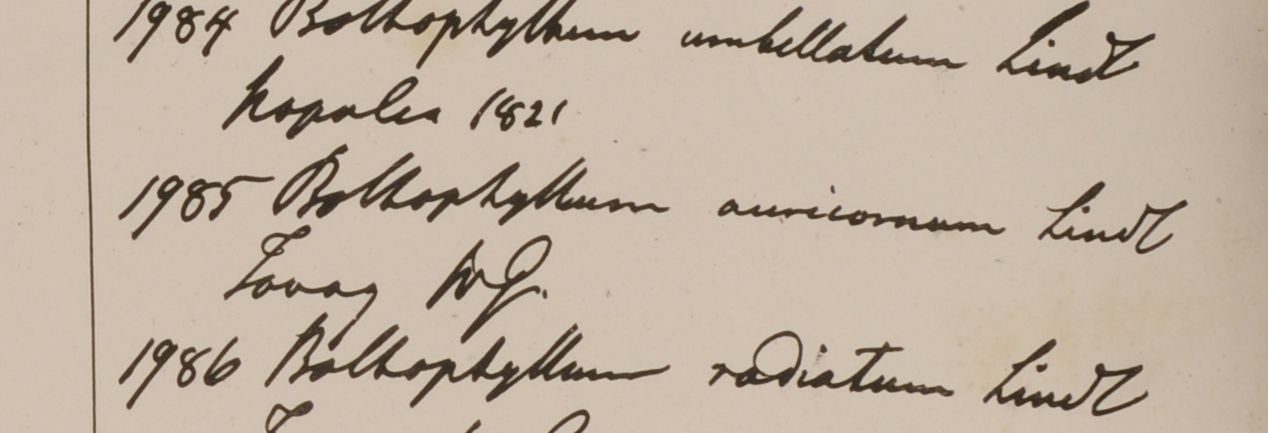 1984 Bolbophyllum umbellatum Lindl
Napalia 1821
1985 Bolbophyllum auricomum Lindl
Tavoy WG.
1986 Bolbophyllum radiatum Lindl